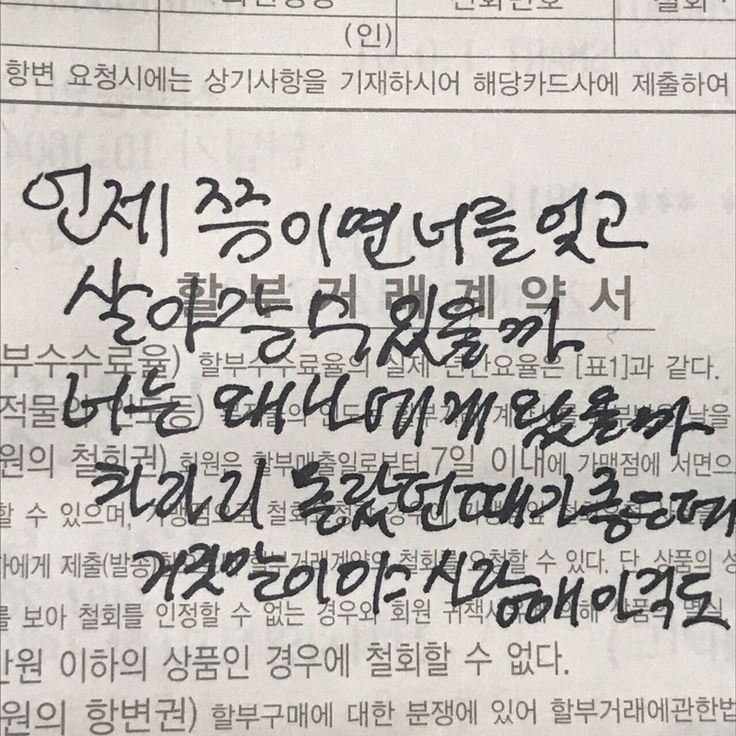 (인)
항변 요청시에는 상기사항을 기재하시어 해당카드사에 제출하여
언제 쯤이면 너를 잊고
할부거래계약서
살아갈 수 있을까
부수수료율) 할부수수료율의 실제 연간요율은 [표1]과 같다.
너는 왜 나에게 왔을까
원의 철회권) 회원은 할부매출일로부터 7일 이내에 가맹점에 서면으
차라리 몰랐던때가 좋은데
할 수 있으며,
하에게 제출(발송) 할부거래계약의 철회를 요청할 수 있다. 단, 상품의 성
거짓말이야 사랑해
를 보아 철회를 인정할 수 없는 경우와 회원 귀책사유에 의해 상품의 멸실
만원 이하의 상품인 경우에 철회할 수 없다.
원의 항변권) 할부구매에 대한 분쟁에 있어 할부거래에관한법